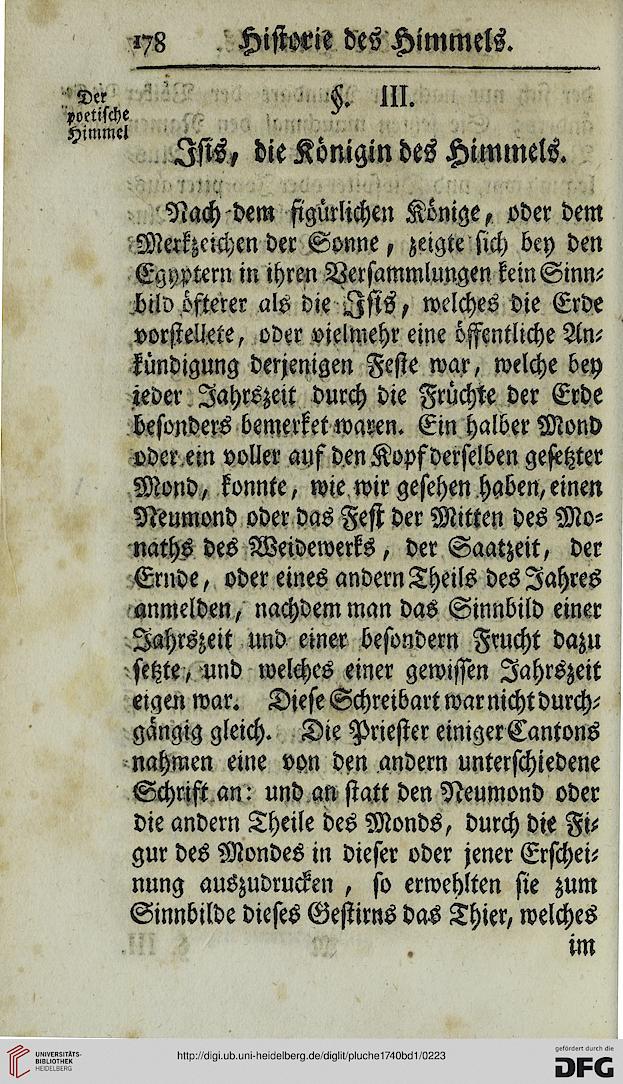 178 Historie des Himmels.
Der
poetische
Himmel
§. III.
Isis, die Königin des Himmels.
Nach dem figürlichen Könige, oder dem
Merkzeichen der Sonne, zeigte sich bey den
Egyptern in ihren Versammlungen kein Sinn-
bild öfterer als die Isis, welches die Erde
vorstellete, oder vielmehr eine öffentliche An-
kündigung derjenigen Feste war, welche bey
jeder Jahrszeit durch die Früchte der Erde
besonders bemerket waren. Ein halber Mond
oder ein voller auf den Kopf derselben gesetzter
Mond, konnte, wie wir gesehen haben, einen
Neumond oder das Fest der Mitten des Mo-
naths des Weidewerks, der Saatzeit, der
Ernde, oder eines andern Theils des Jahres
anmelden, nachdem man das Sinnbild einer
Jahrszeit und einer besondern Frucht dazu
setzte, und welches einer gewissen Jahrszeit
eigen war. Diese Schreibart war nicht durch-
gängig gleich. Die Priester einiger Cantons
nahmen eine von den andern unterschiedene
Schrift an: und an statt den Neumond oder
die andern Theile des Monds, durch die Fi-
gur des Mondes in dieser oder jener Erschei-
nung auszudrucken, so erwehlten sie zum
Sinnbilde dieses Gestirns das Thier, welches
im
UNIVERSITÄTS-
BIBLIOTHEK
HEIDELBERG
http://digi.ub.uni-heidelberg.de/diglit/pluche1740bd1/0223
gefördert durch die
DFG